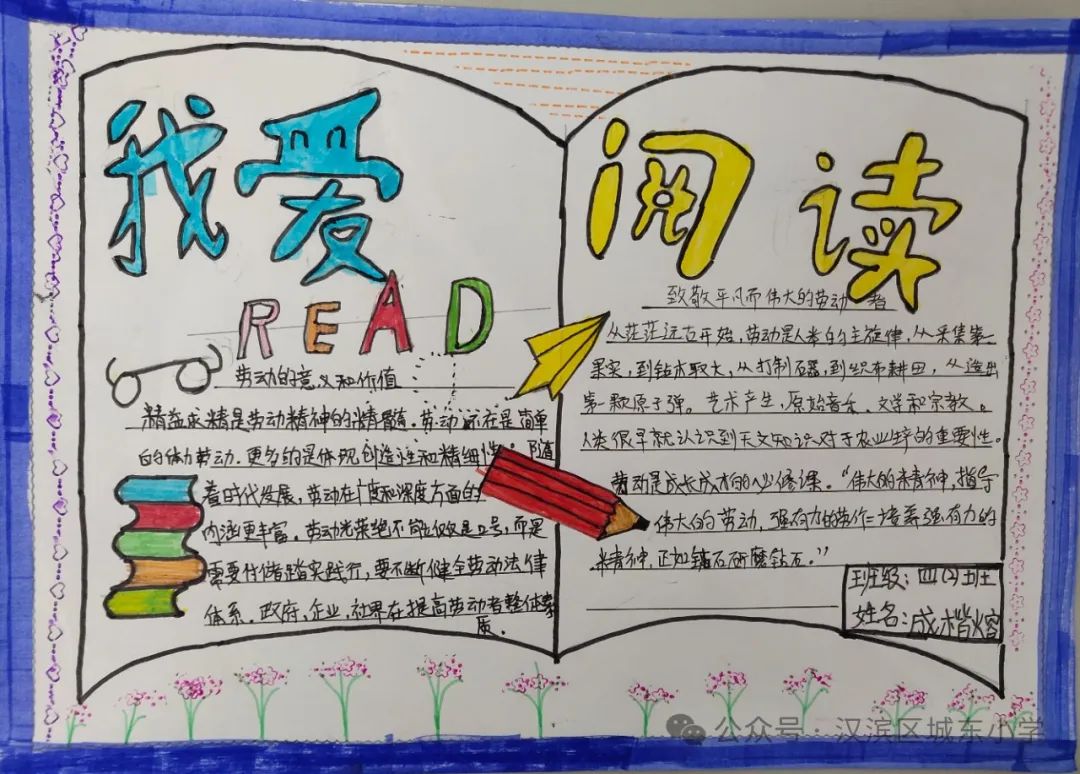 我爱
READ
劳动的意义和价值
精益求精是劳动精神的精髓。劳动不在是简单
的体力劳动。更多的是体现创造性和精细性。随
着时代发展，劳动在广度和深度方面的
内涵更丰富。劳动光荣绝不仅仅是口号，而是
需要付诸践行，要不断健全劳动法律
体系。政府，企业，社界在提高劳动者整体素
质。
阅读
致敬平凡而伟大的劳动者
从茫茫远古开始，劳动是人类的主旋律，从采集第一
果实，到钻木取火，从打制石器，到织布耕田，从造出
第一颗原子弹。艺术产生，原始音乐、文学和宗教。
人类很早就认识到天文知识对于农业生产的重要性。
劳动是成长成才的必修课。“伟大的精神，指导
伟大的劳动，强有力的劳作培养强有力的
精神，正如镶石研磨钻石。”
班级：四(2)班
姓名：成楷熔
公众号·汉滨区城东小学